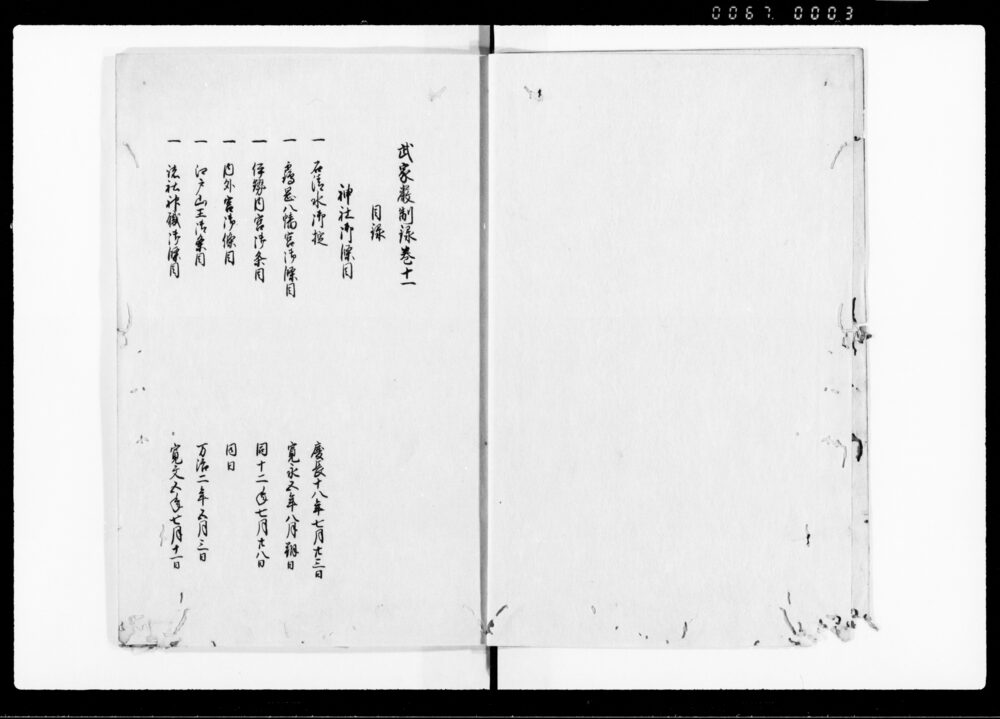 0067 0003
武家嚴制録巻十一
目録
神社御條目
一 石清水御掟 慶長十八年七月廿三日
一 鶴岡八幡宮御條目 寛永五年八月朔日
一 伊勢内宮御条目 同十二年七月廿八日
一 内外宮御條目 同日
一 江戸山王御条目 万治二年五月三日
一 諸社神職御條目 寛文五年七月十一日